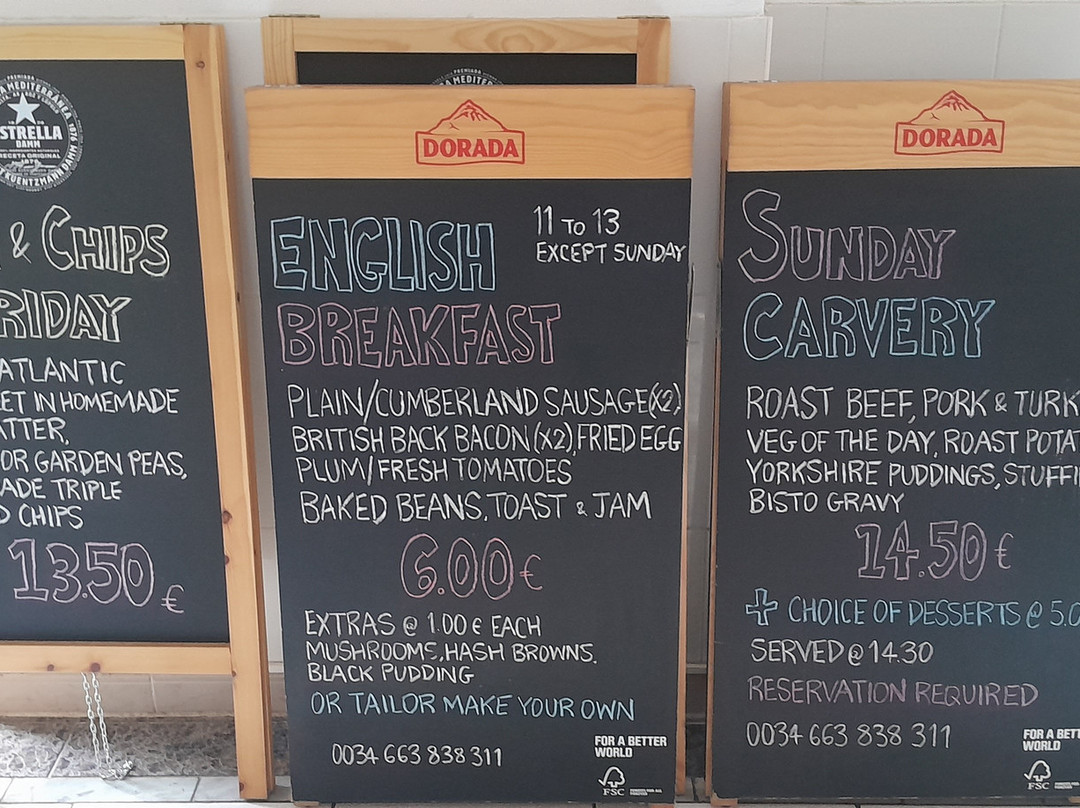 & CHIPS
ATLANTIC
IN HOMEMADE
OR GARDEN PEAS,
TRIPLE
CHIPS
13.50 €
ESTRELLA
DAMM
DORADA
ENGLISH
BREAKFAST
11 TO 13
EXCEPT SUNDAY
PLAIN/CUMBERLAND SAUSAGE(X2),
BRITISH BACK BACON (X2), FRIED EGG
PLUM/FRESH TOMATOES
BAKED BEANS, TOAST & JAM
6.00 €
EXTRAS @ 1.00 € EACH
MUSHROOMS, HASH BROWNS,
BLACK PUDDING
OR TAILOR MAKE YOUR OWN
0034 663 838 311
FOR A BETTER
WORLD
FSC
DORADA
SUNDAY
CARVERY
ROAST BEEF, PORK & TURK
VEG OF THE DAY, ROAST POTAT
YORKSHIRE PUDDINGS, STUFFI
BISTO GRAVY
14.50 €
+ CHOICE OF DESSERTS @ 5.0
SERVED @ 14.30
RESERVATION REQUIRED
0034 663 838 311
FOR A BET
WORLD
FSC